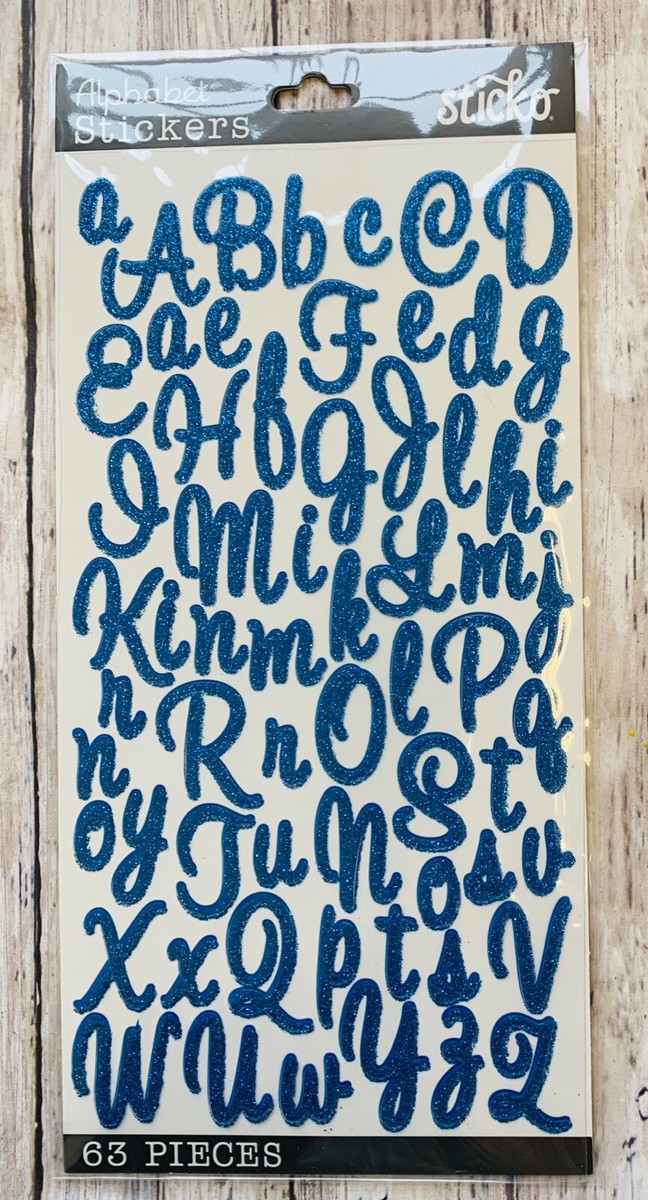 Alphabet
Stickers
sticko
a A B b c C D
E a e F e d g
H f G J l h i
I M i L m j
K i n m k l P
r R r O q
n o y T u N S t
o s v
X x Q p t s V
W U w Y z Z
63 PIECES